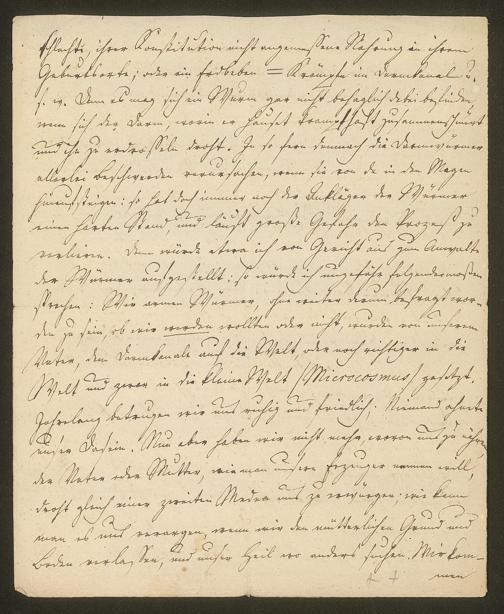 schlechte, ihrer Konstitution nicht angemessene Nahrung in ihrem
Geburtsorte; oder ein Erdbeben = Krämpfe im Darmkanal u.
s. w. Denn es mag sich ein Wurm gar nicht behaglich dabei befinden
wenn sich der Darm, worin er hauset krampfhaft zusammenschnürt
und ihn zu erdrosseln droht. In so fern demnach die Darmwürmer
allerlei Beschwerden verursachen, wenn sie von da in den Magen
hinaufsteigen: so hat doch immer noch der Ankläger der Würmer
einen harten Stand, und läuft große Gefahr den Prozeß zu
verlieren. Denn würde etwa ich von Gericht aus zum Anwalte
der Würmer aufgestellt: so würde ich ungefähr folgendermaßen
sprechen: Wir armen Würmer, ohne weiter darum befragt wor-
den zu sein, ob wir werden wollten oder nicht, wurden von unserem
Vater, dem Darmkanale auf die Welt, oder noch richtiger in die
Welt und zwar in die kleine Welt (Microcosmus) gesetzt.
Jahrelang betrugen wir uns ruhig und friedlich: Niemand ahnete
unser Dasein. Nun aber haben wir nicht mehr, wovon uns zu nähren,
der Vater oder Mutter, wie man unsern Erzeuger nennen will,
droht gleich einer zweiten Medea uns zu erwürgen: wie kann
man es uns verargen, wenn wir den mütterlichen Grund und
Boden verlassen, und unser Heil wo anders suchen. Wir kom-
men